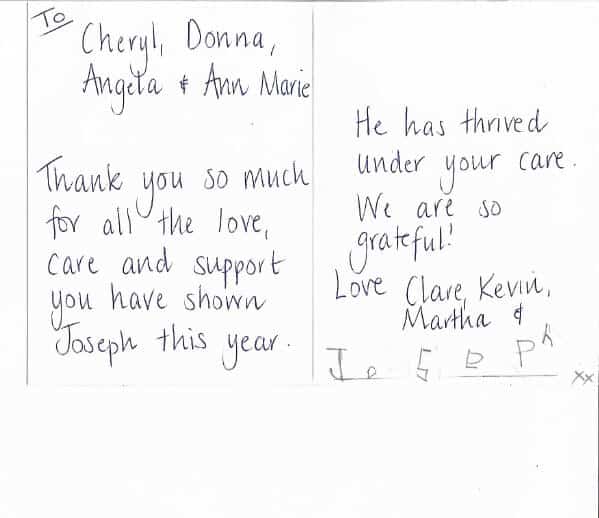 To
Cheryl, Donna,
Angela & Ann Marie
Thank you so much
for all the love,
care and support
you have shown
Joseph this year.
He has thrived
under your care.
We are so
grateful!
Love Clare, Kevin,
Martha &
Joseph
xx